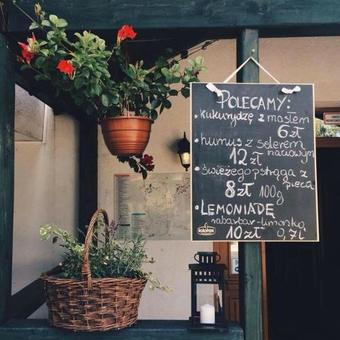 POLECAMY:
• kukurydzę z masłem
6 zł
• humus z selerem
naciowym
12 zł
• świeżego pstrąga z
pieca
8 zł 100g
• LEMONIADĘ
rabarbar-limonka
10 zł 0,7l